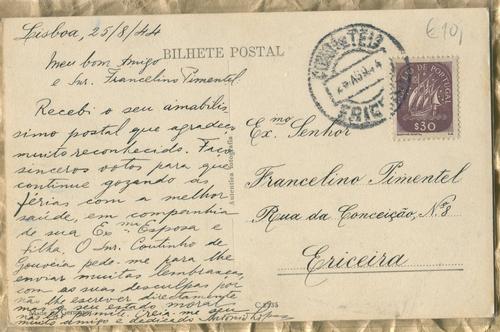 Lisboa, 25/8/44
€10,
BILHETE POSTAL
Meu bom Amigo
e Snr. Francelino Pimentel.
Recebi o seu amabilis
simo postal que agradeço
muito reconhecido. Faço
sinceros votos para que
continue gozando as
férias com a melhor
saúde, em companhia
de sua Exma Esposa e
Filha. O Snr. Coutinho de
Gouveia pede-me para lhe
enviar muitas lembranças,
com as suas desculpas por
não lhe escrever directamente
mas o seu estado moral
não lho permite. Creia-me seu
muito amigo e dedicado António
Autentica fotografia
PORTUGAL
$30
Exmo Senhor
Francelino Pimentel
Rua da Conceição, Nº 8
Ericeira